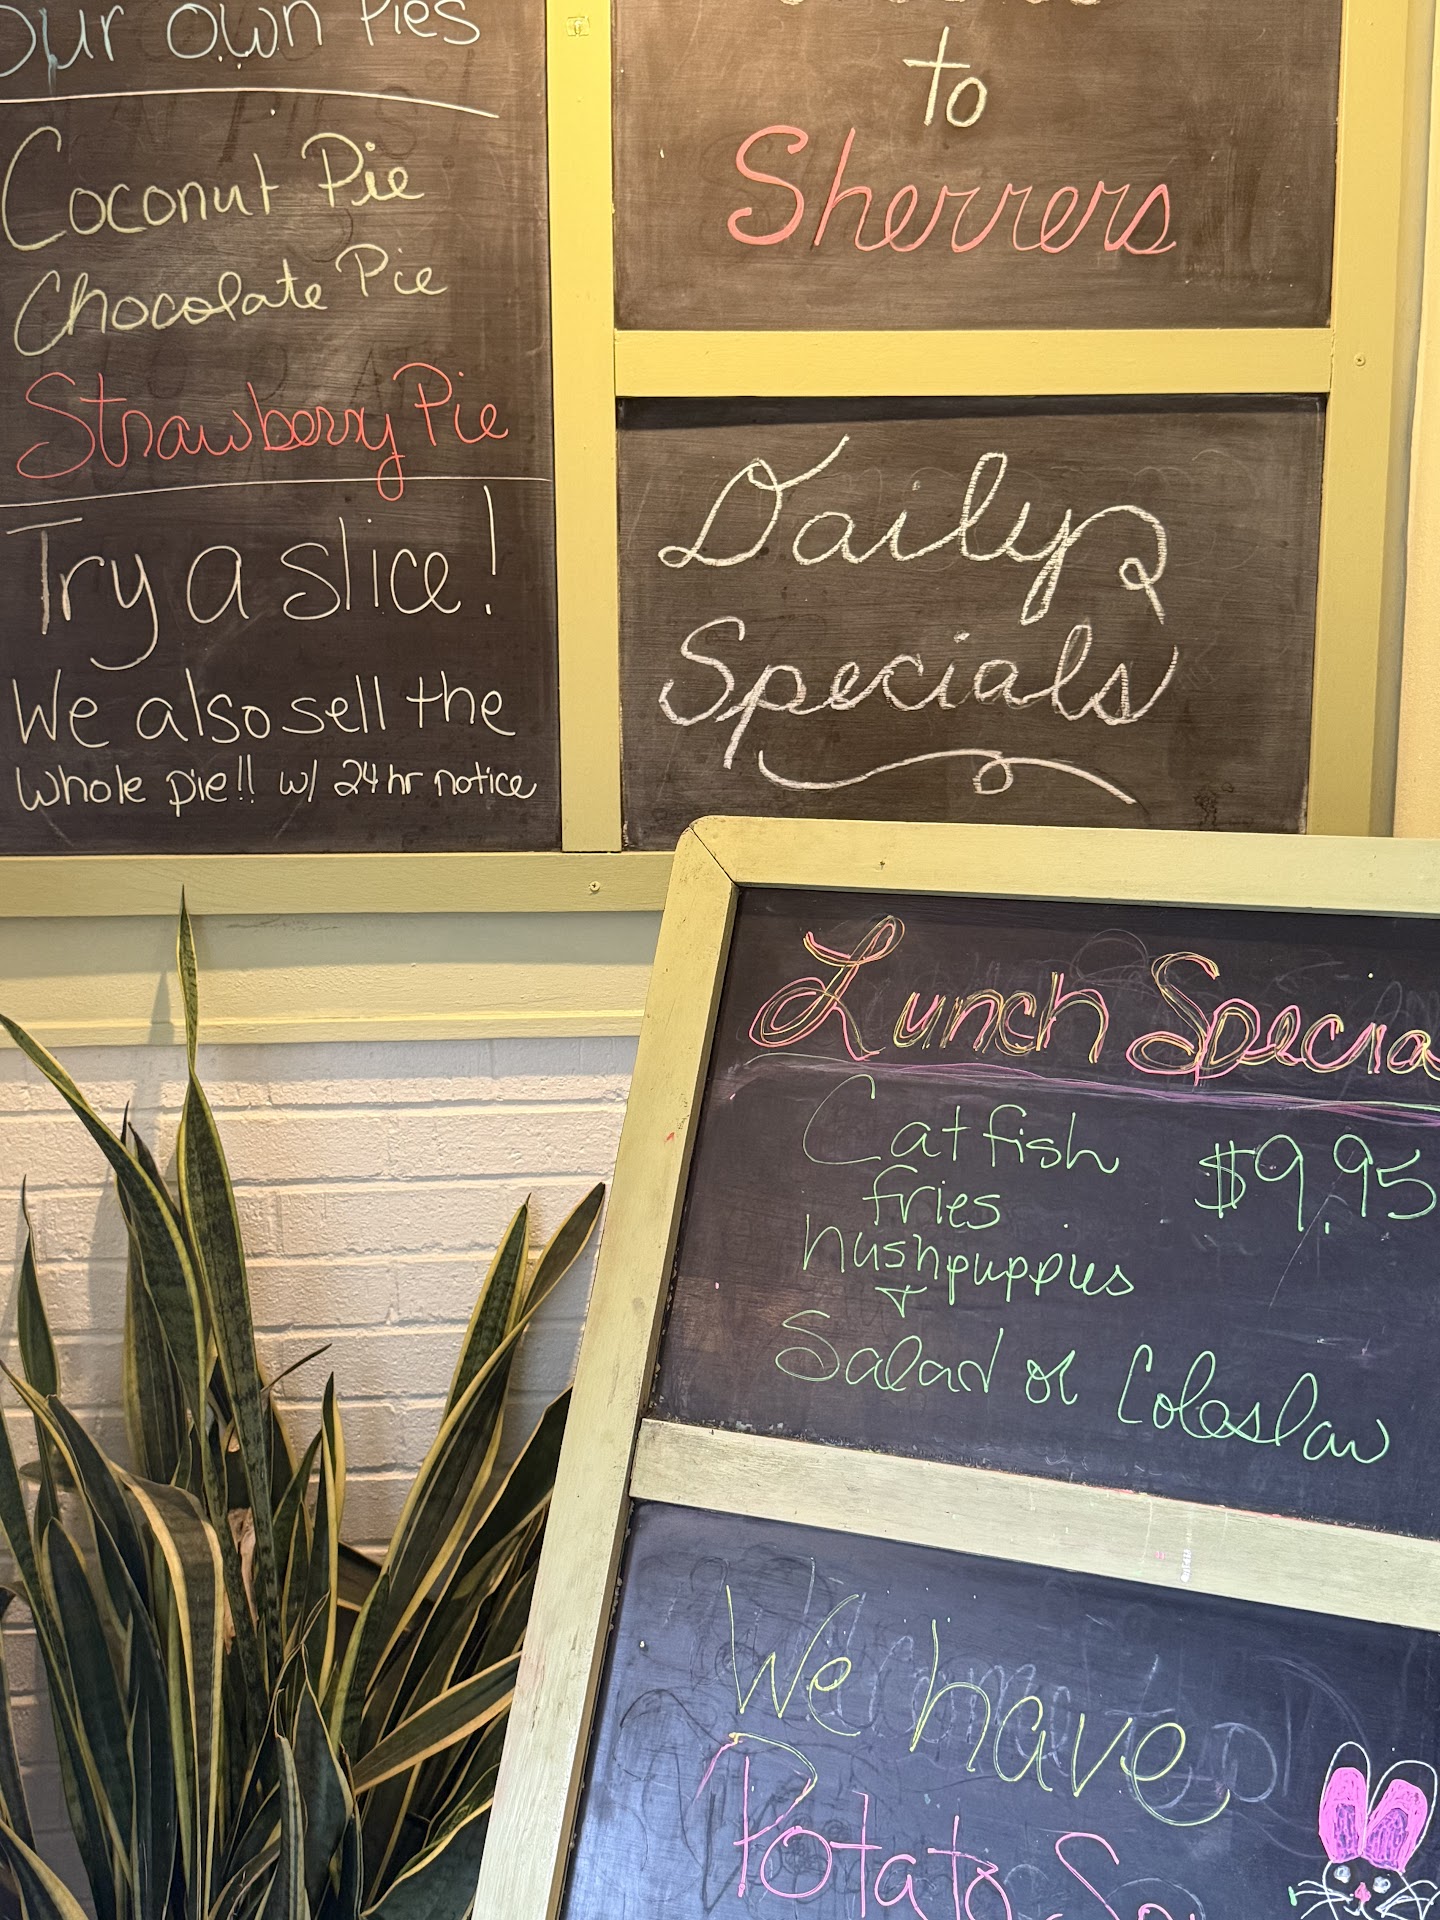 our own Pies
Coconut Pie
Chocolate Pie
Strawberry Pie
Try a slice!
We also sell the
whole pie!! w/ 24 hr notice
to
Sherrers
Daily
Specials
Lunch Specia
Catfish $9.95
fries
hushpuppies
+
Salad or Coleslaw
We have
Potato